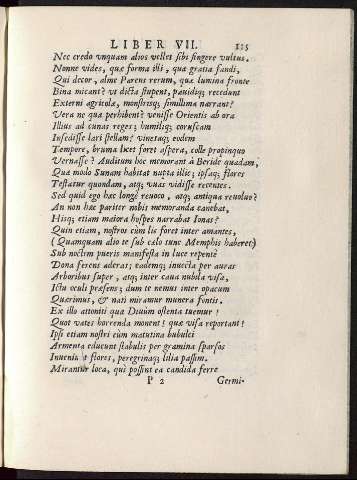 LIBER VII. 115
Nec credo vnquam alios vellet sibi fingere vultus.
Nonne vides, quæ forma illi, quæ gratia fandi,
Qui decor, alme Parens rerum, quæ lumina fronte
Bina micant? vt dicta stupent, pauidiq; recedunt
Externi agricolæ, monstrisq; simillima narrant?
Vera ne qua perhibent? venisse Orientis ab ora
Illius ad cunas reges; humiliq; coruscam
Insedisse lari stellam? vinetaq; eodem
Tempore, bruma licet foret aspera, colle propinquo
Vernasse? Auditum hoc memorant à Beride quadam,
Quæ modo Sunam habitat nupta illic; ipsaq; flores
Testatur quondam, atq; vuas vidisse recentes.
Sed quid ego hæc longè reuoco, atq; antiqua reuoluo?
An non hæc pariter nobis memoranda canebat,
Hisq; etiam maiora hospes narrabat Ionas?
Quin etiam, nostros cùm lis foret inter amantes,
(Quamquam alio te sub cælo tunc Memphis haberet)
Sub noctem pueris manifesta in luce repentè
Dona ferent aderas; eademq; inuecta per auras
Arboribus super, atq; inter caua nubila visa,
Ictu oculi præsens; dum te nemus inter opacum
Quærimus, & nati miramur munera fontis.
Ex illo attoniti quæ Diuûm ostenta tuemur!
Quot vates horrenda monent! quæ visa reportant!
Ipsi etiam nostri cùm matutina bubulci
Armenta educunt stabulis per gramina sparsos
Inueniut flores, peregrinaq; lilia passim.
Mirantur loca, qui possint ea candida ferre
P 2 Germi-